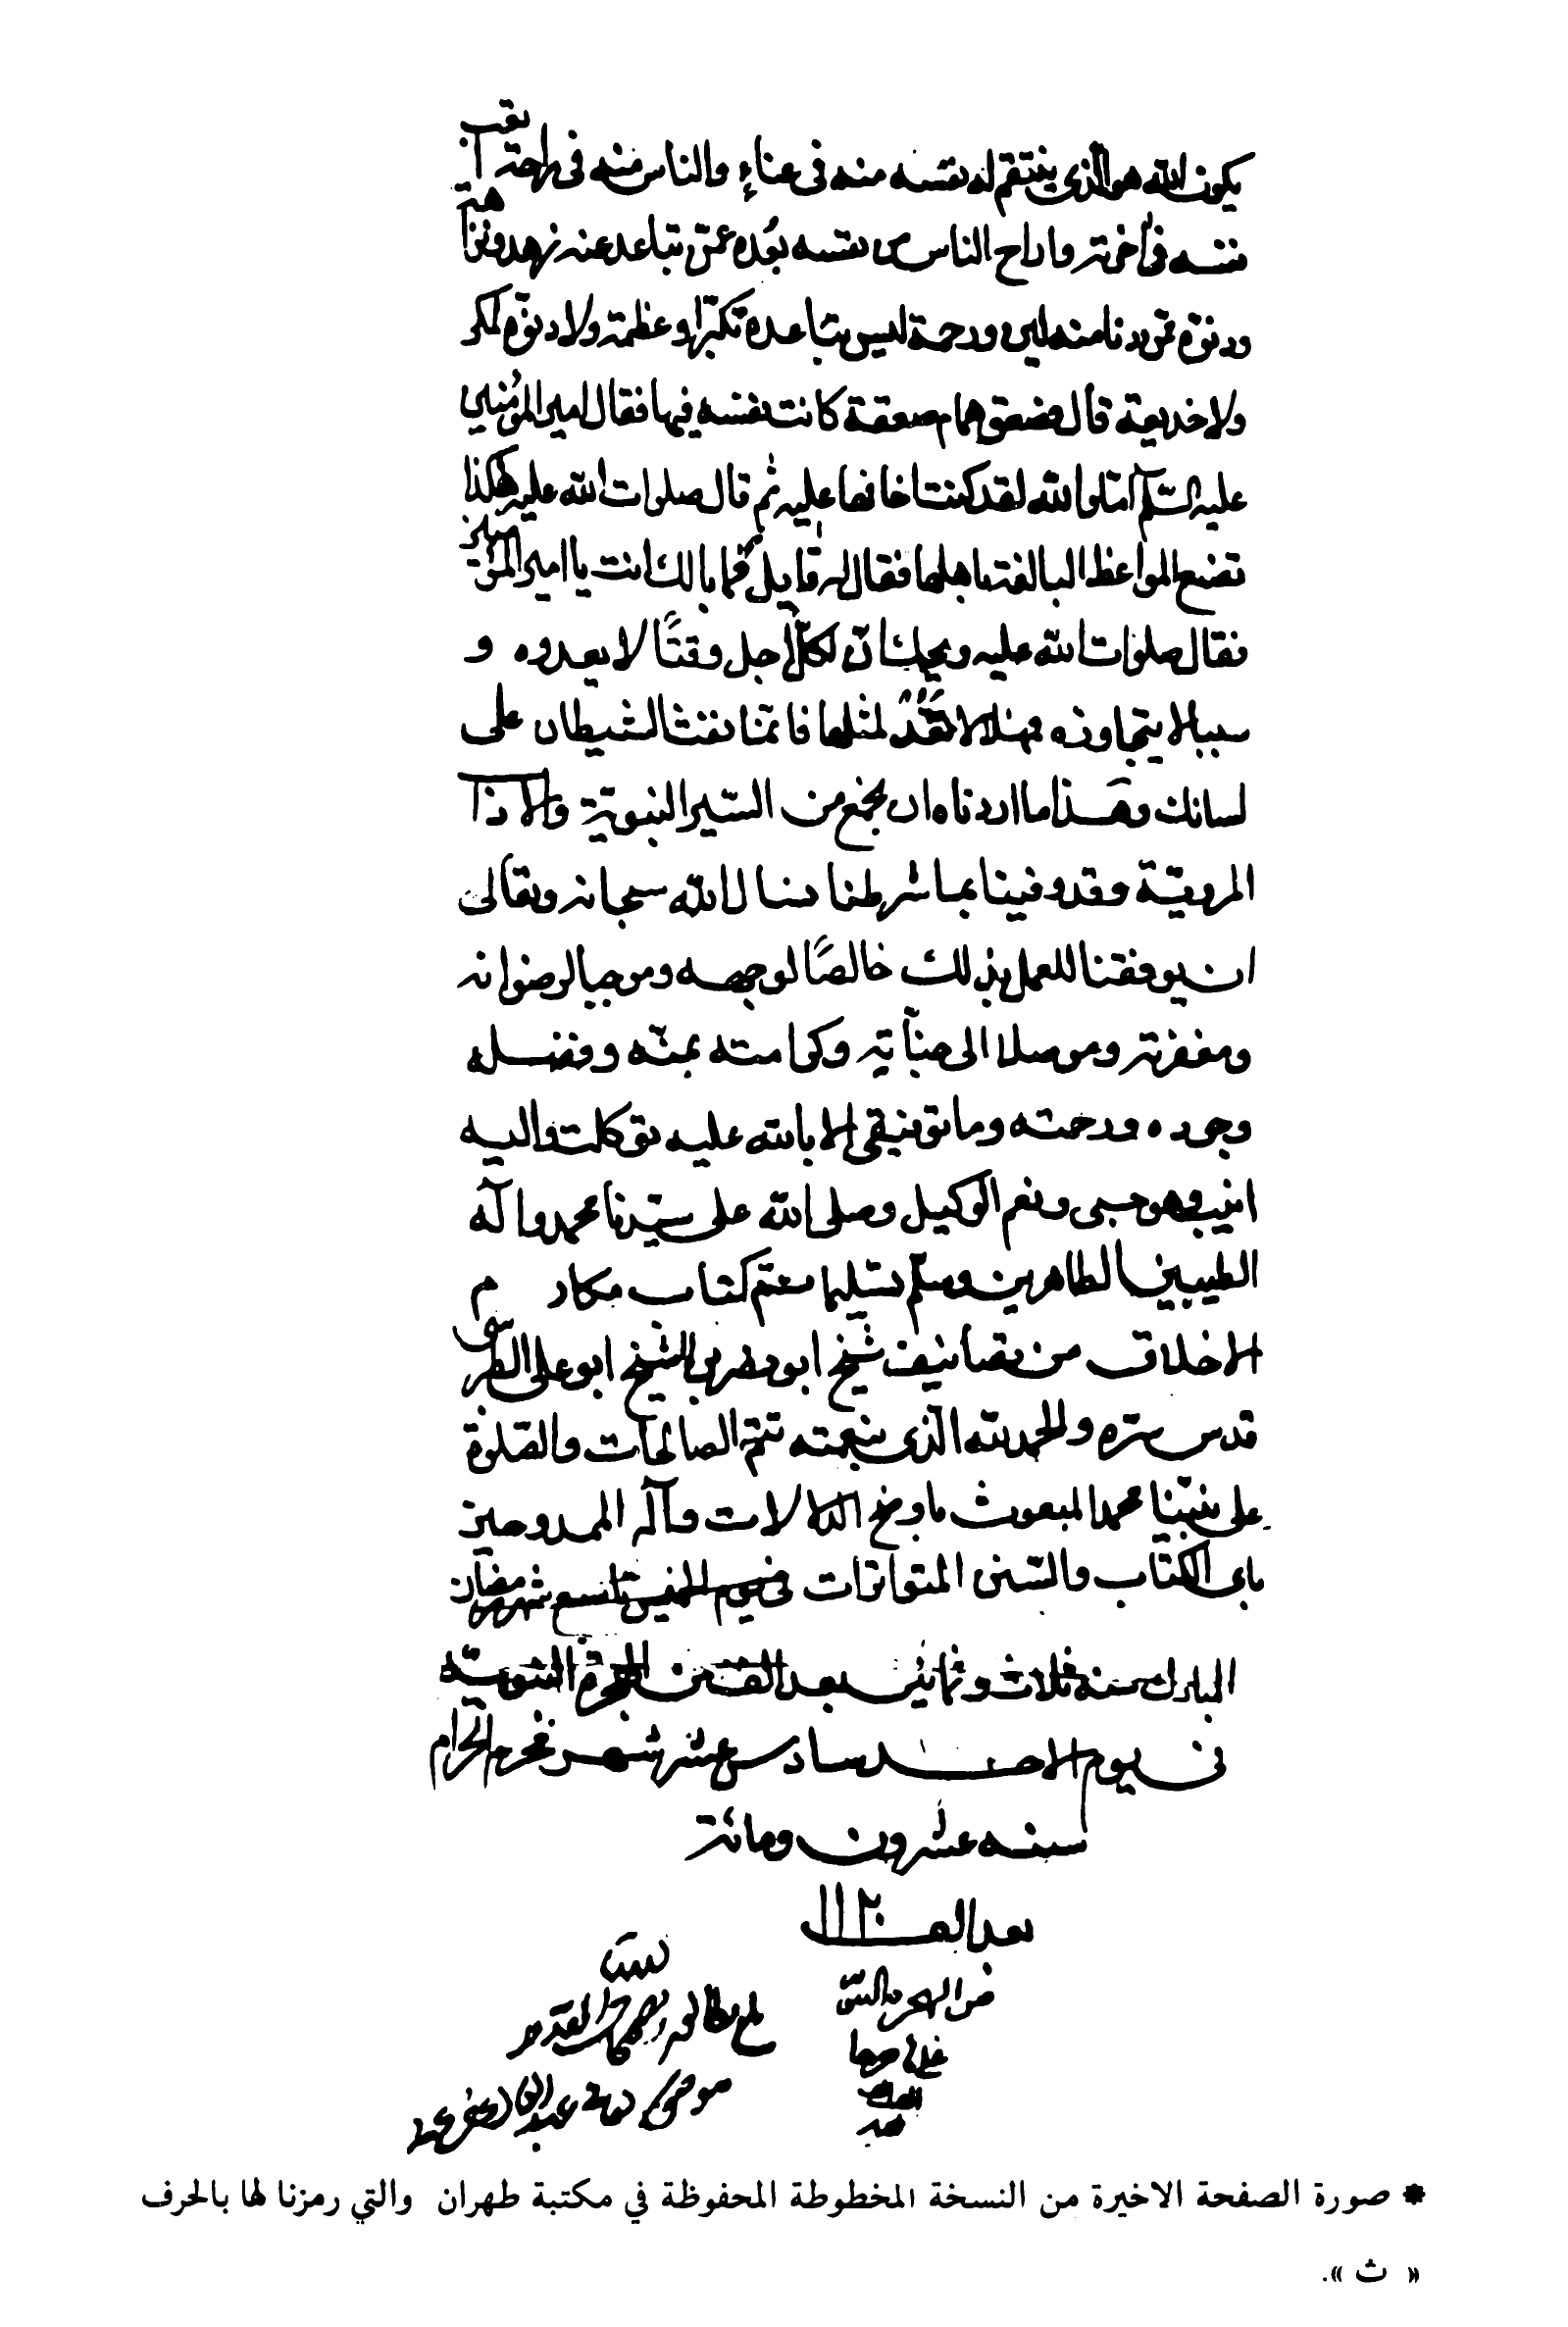 يكون الله هو الذى ينتقم له نفسه منه فى عناء والناس منه فى راحة اتعب
نفسه فى آخرته واراح الناس من نفسه بعده عمّن تباعد عنه زهد ونزاهة
ودنوّه ممّن دنا منه لين ورحمة ليس بتباعده تكبّرا وعظمة ولا دنوّه لمكر
ولا خديعة قال فصعق همام صعقة كانت نفسه فيها فقال امير المؤمنين
عليه السّلم اما والله لقد كنت اخافها عليه ثم قال صلوات الله عليه هكذا
تصنع المواعظ البالغة باهلها فقال له قايل فما بالك انت يا امير المؤمنين
فقال صلوات الله عليه ويحك انّ لكلّ اجل وقتًا لا يعدوه و
سببا لا يتجاوزه فمهلا لا تعد لمثلها فانّما نفث الشيطان على
لسانك وهذا ما اردناه ان نجمع من السّير النبويّة والاداب
المرويّة وقد وفينا بما شرطنا فنسال الله سبحانه وتعالى
ان يوفقنا للعمل بذلك خالصًا لوجهه وموجبا لرضوانه
ومغفرته وموصلا الى جنّاته وكرامته بمنّه وفضله
وجوده ورحمته وما توفيقى الا بالله عليه توكلت واليه
انيب وهو حسبى ونعم الوكيل وصلى الله على سيّدنا محمد وآله
الطيبين الطاهرين وسلّم تسليما تمّ كتاب مكارم
الاخلاق من تصانيف شيخ ابو نصر بن الشيخ ابو على الطبرسى
قدس سرّه والحمد لله الذى بنعمته تتمّ الصالحات والصّلوة
على نبيّنا محمد المبعوث باوضح الدلالات وآله الممدوحين
باى الكتاب والسّنن المتواترات فى يوم الخميس تاسع شهر رمضان
المبارك سنه ثلاث وثمانين بعد الف من الهجرة النبويّه
فى يوم الاحد سادس عشر شهر محرم الحرام
سنه عشرون ومائة
بعد الف ١١٢٠
من الهجره النبى
بلغ مطالعة
* صورة الصفحة الاخيرة من النسخة المخطوطة المحفوظة في مكتبة طهران والتي رمزنا لها بالحرف
« ث ».